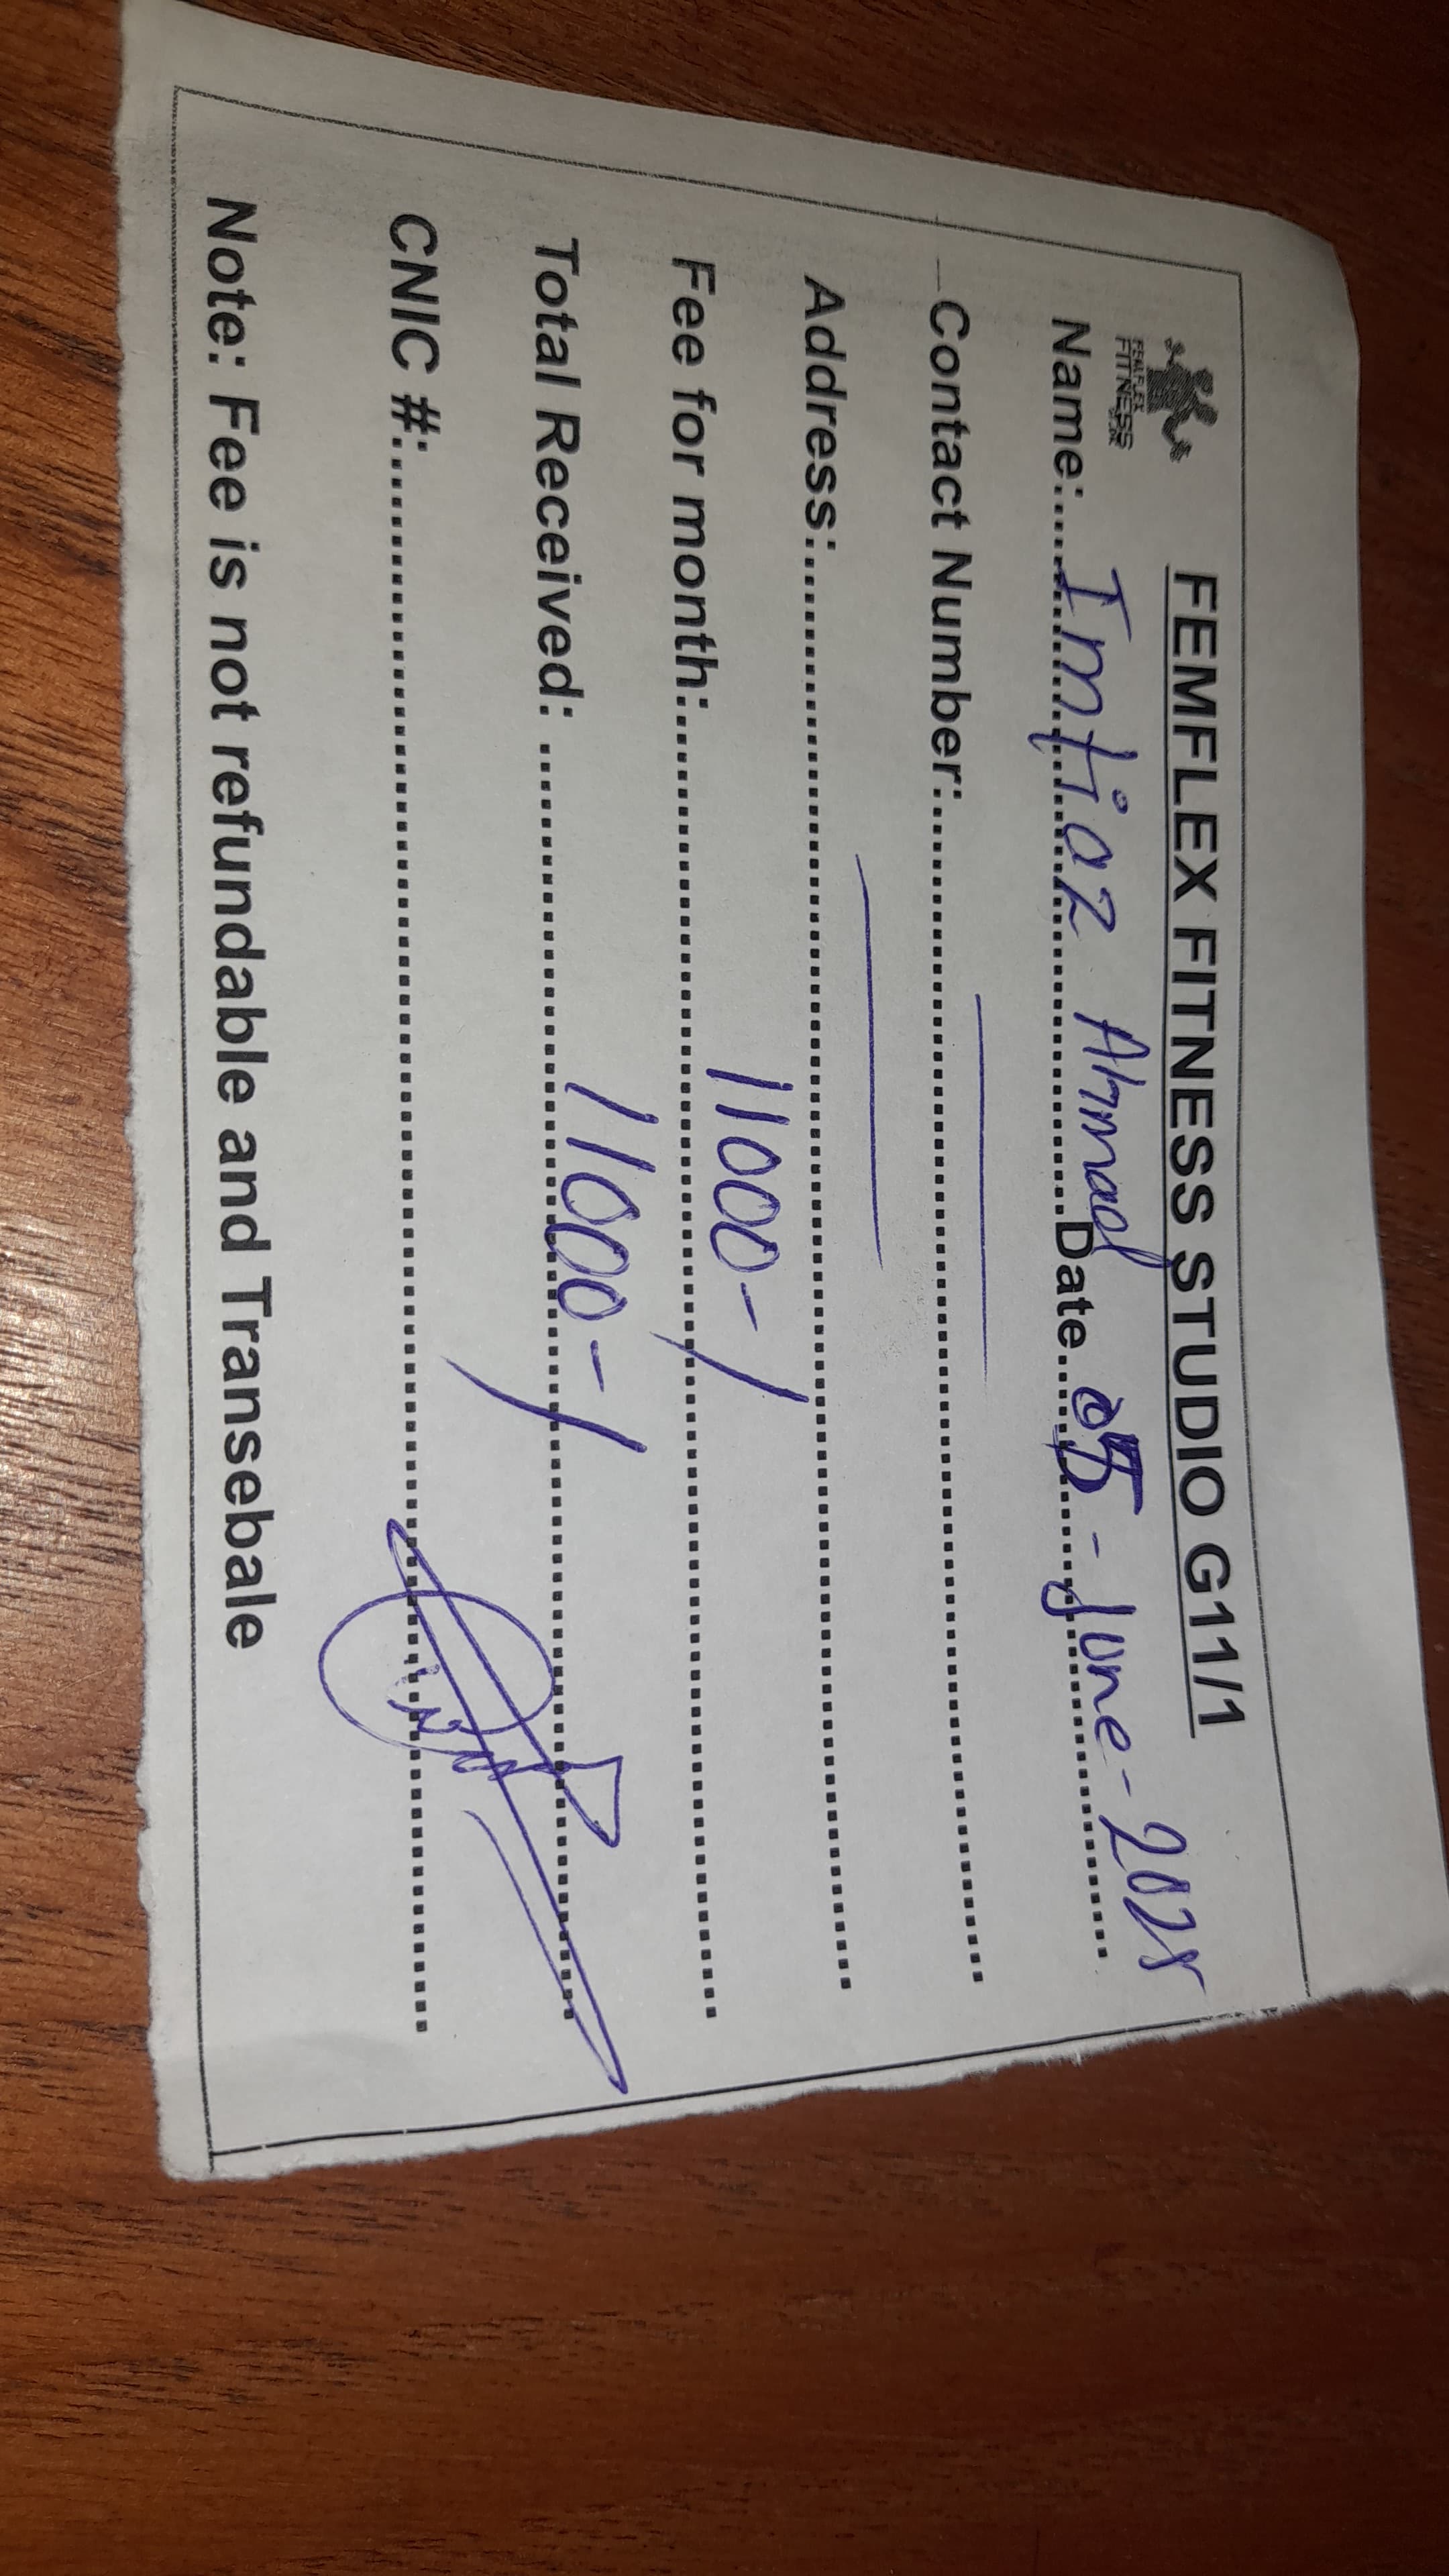 FEMFLEX FITNESS STUDIO G11/1
FEMFLEX
FITNESS
Name:.....Imtiaz Ahmad.....Date.....05-June-2025
Contact Number:.....
Address:.....
Fee for month:.....11000-/
Total Received: .....11000-/
CNIC #:.....
Note: Fee is not refundable and Transebale